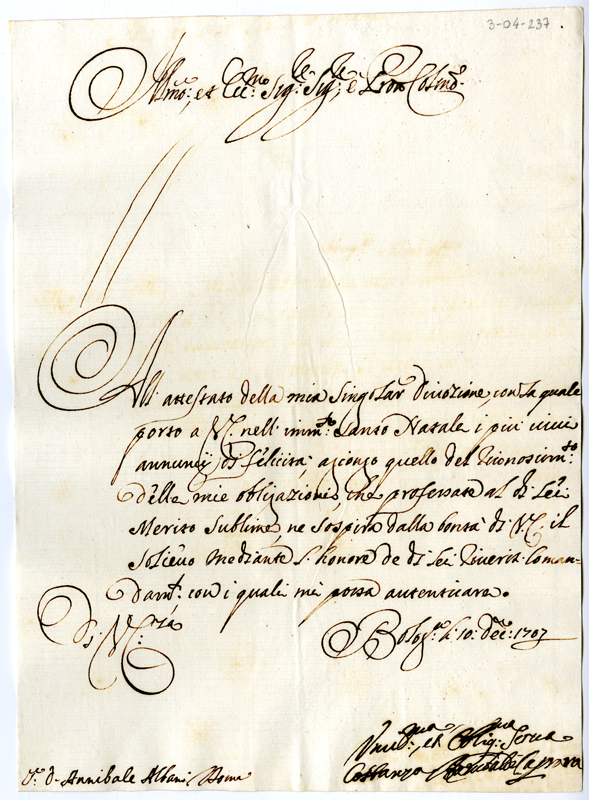 3-04-237
Ill.mo et Ecc.mo Sig.re Sig.re e Pron Colmo.
All' attestato della mia singolar Divozione, con la quale
porto a V.E. nell' imm.te Santo Natale i più vivi
annunzij di felicità, agiongo quello del riconoscim.to
delle mie obligazioni, che professate al di Lei
Merito Sublime, ne sospira dalla bontà di V.E. il
Solievo mediante l'honore de di Lei riveriti Coman-
dam.ti con i quali mi possa autenticare.
Di V.E.
Bolog.a li 10: Dec.re: 1707
Um.ma et Oblig.ma Serva
Costanza
D. Annibale Albani Roma